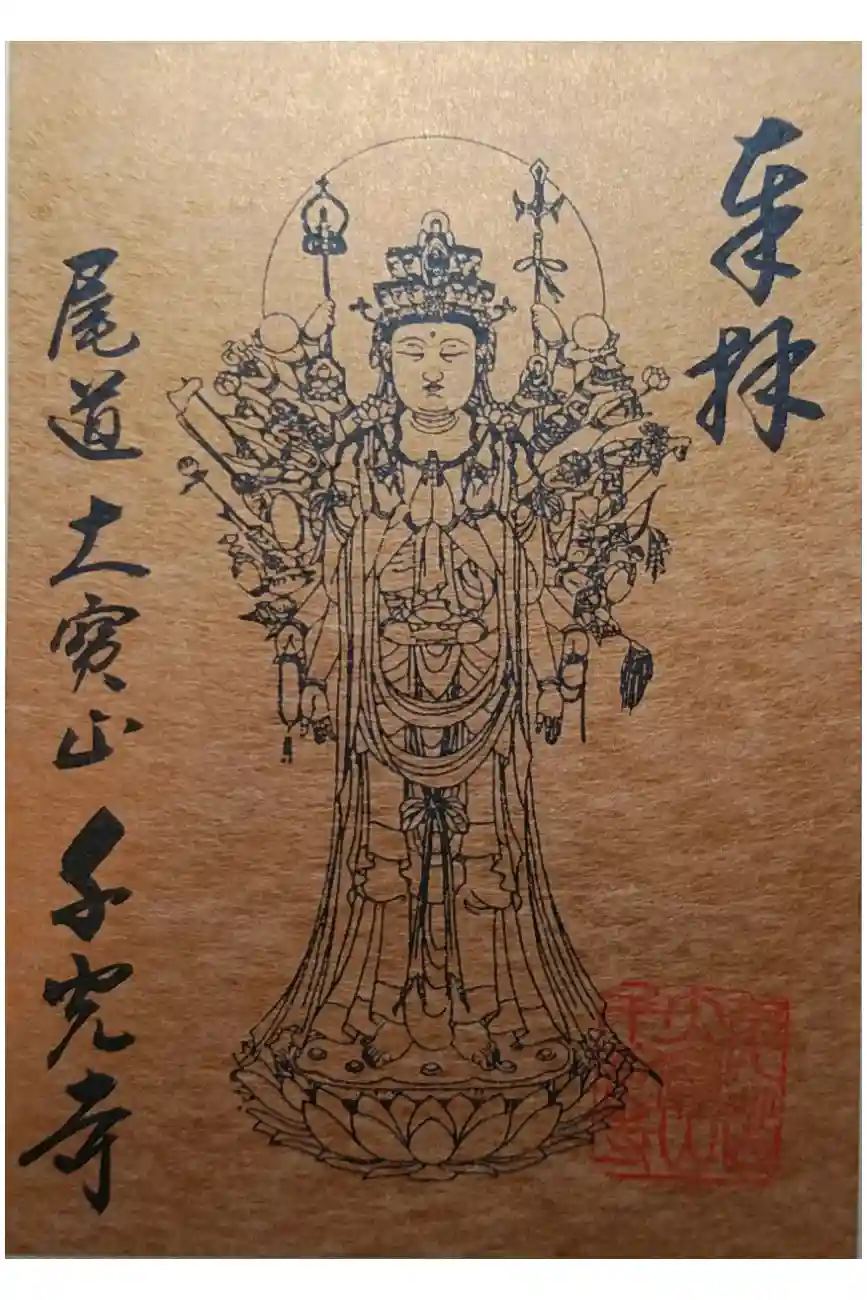 奉拝
尾道 大寳山 千光寺